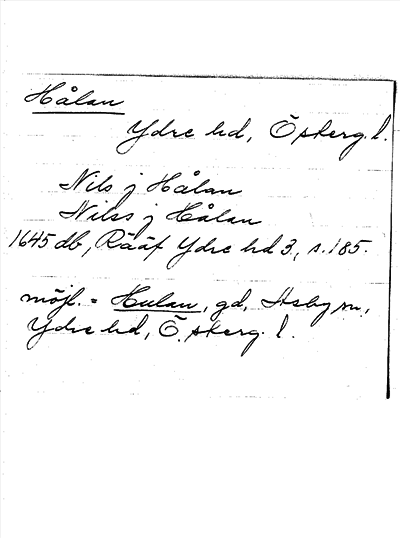 Hålan
Ydre hd, Österg. l.
Nils j Hålan
Nilss j Hålan
1645 db, Rääf Ydre hd 3, s. 185.
möjl. = Hulan, gd, Asby sn,
Ydre hd, Österg. l.